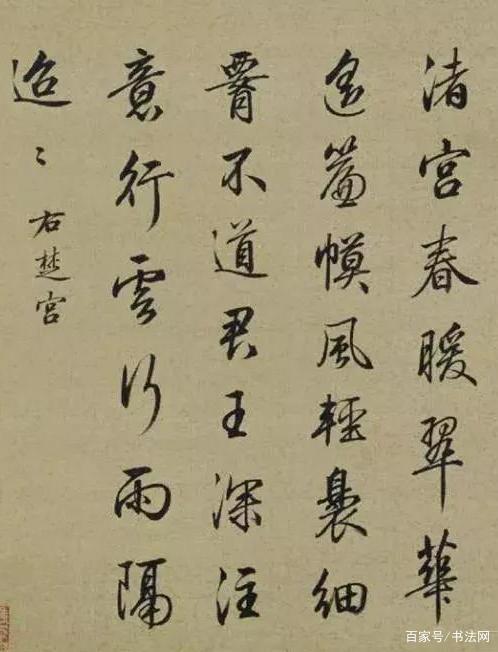 渚宮春暖翠華
遙簾幙風輕裊細
霄不道君王深注
意行雲行雨隔
迢〻
右楚宮
百家号/书法网